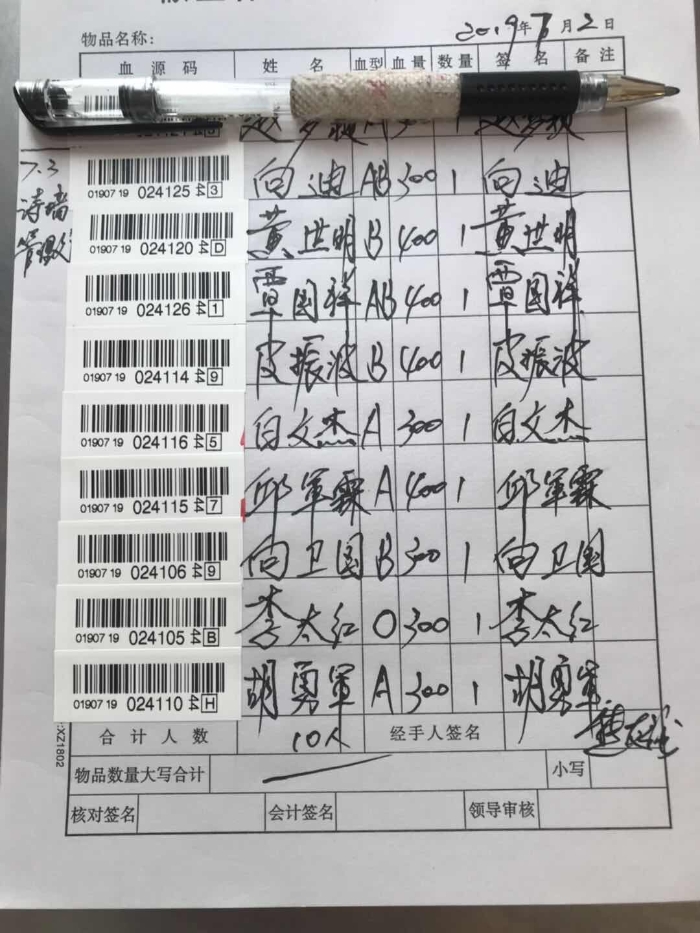 物品名称: 2019年7月2日
血源码 姓名 血型 血量 数量 签名 备注
A 1
01907 19 024125 3 向迪 AB 300 1 向迪
7.3
01907 19 024120 D 黄世明 B 400 1 黄世明
诗墙
01907 19 024126 1 覃国祥 AB 400 1 覃国祥
01907 19 024114 9 皮振波 B 400 1 皮振波
01907 19 024116 5 白文杰 A 300 1 白文杰
01907 19 024115 7 邱军霖 A 400 1 邱军霖
01907 19 024106 9 向卫国 B 300 1 向卫国
01907 19 024105 B 李太红 O 300 1 李太红
01907 19 024110 H 胡勇军 A 300 1 胡勇军
合计人数 10人 经手人签名
:XZ1802
物品数量大写合计 小写
核对签名 会计签名 领导审核